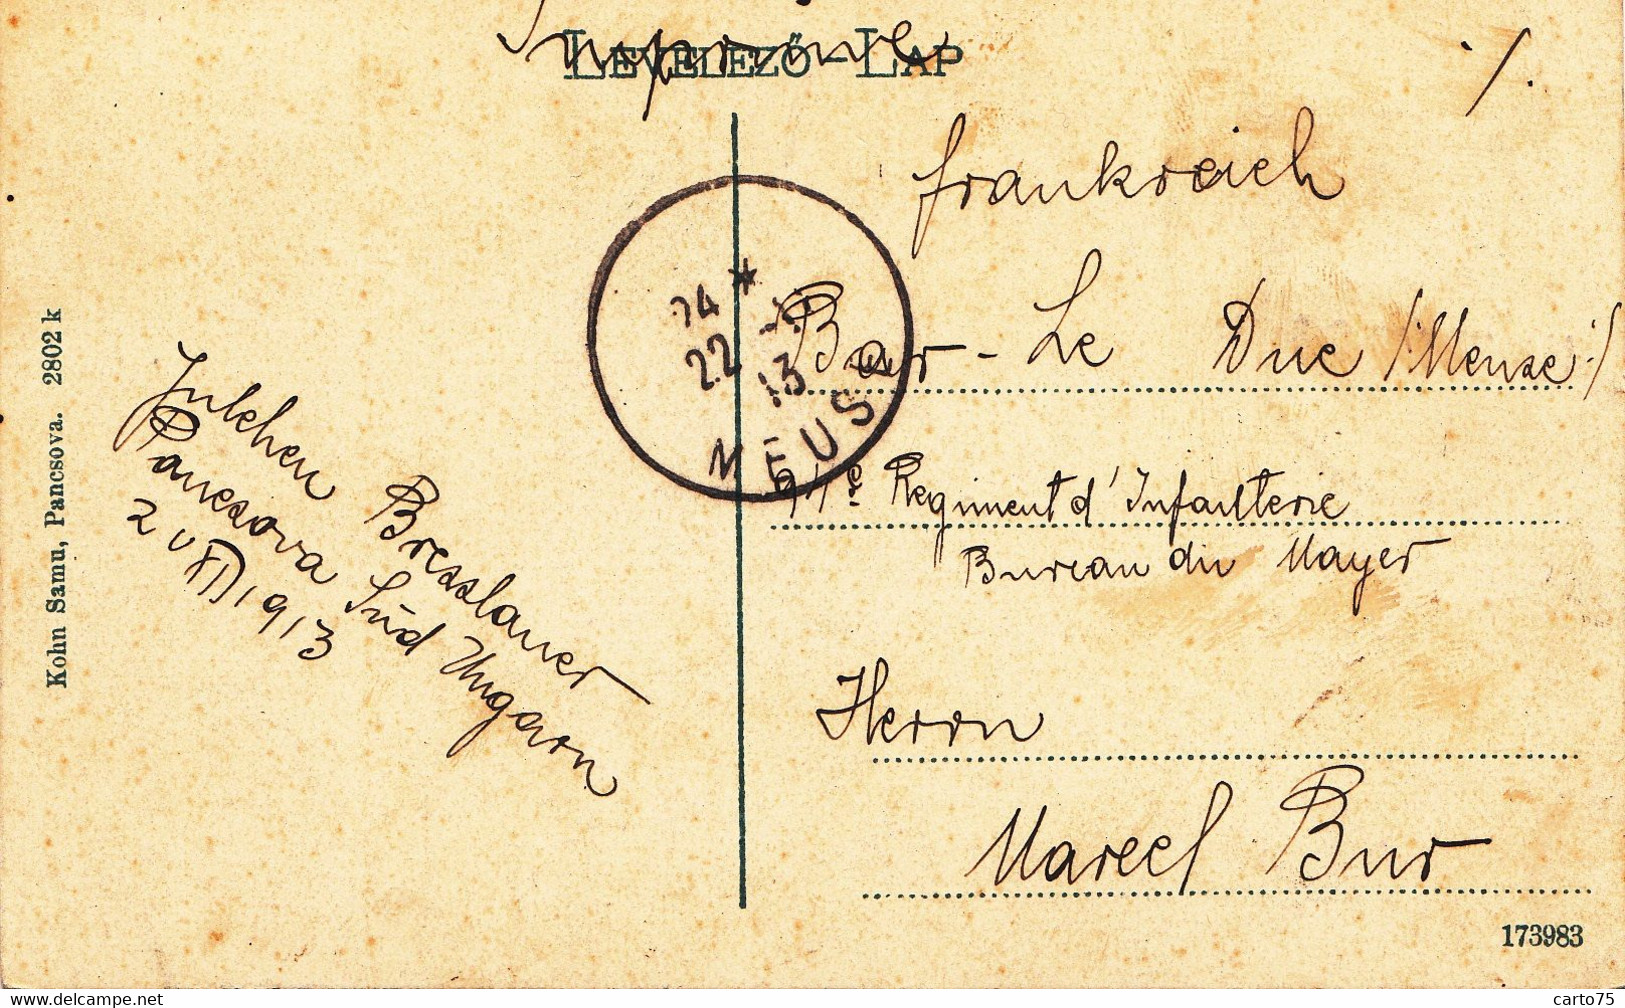 Levelező-Lap
Imprimé
frankreich
Bar-Le Duc /:Meuse:/
94e Regiment d'Infanterie
Bureau du Mayer
Herrn
Marcel Bur
Julchen Bresslauer
Pancsova Süd Ungarn
2 VII 1913
14 *
22
13
MEUS
Kohn Samu, Pancsova. 2802 k
173983
carto75